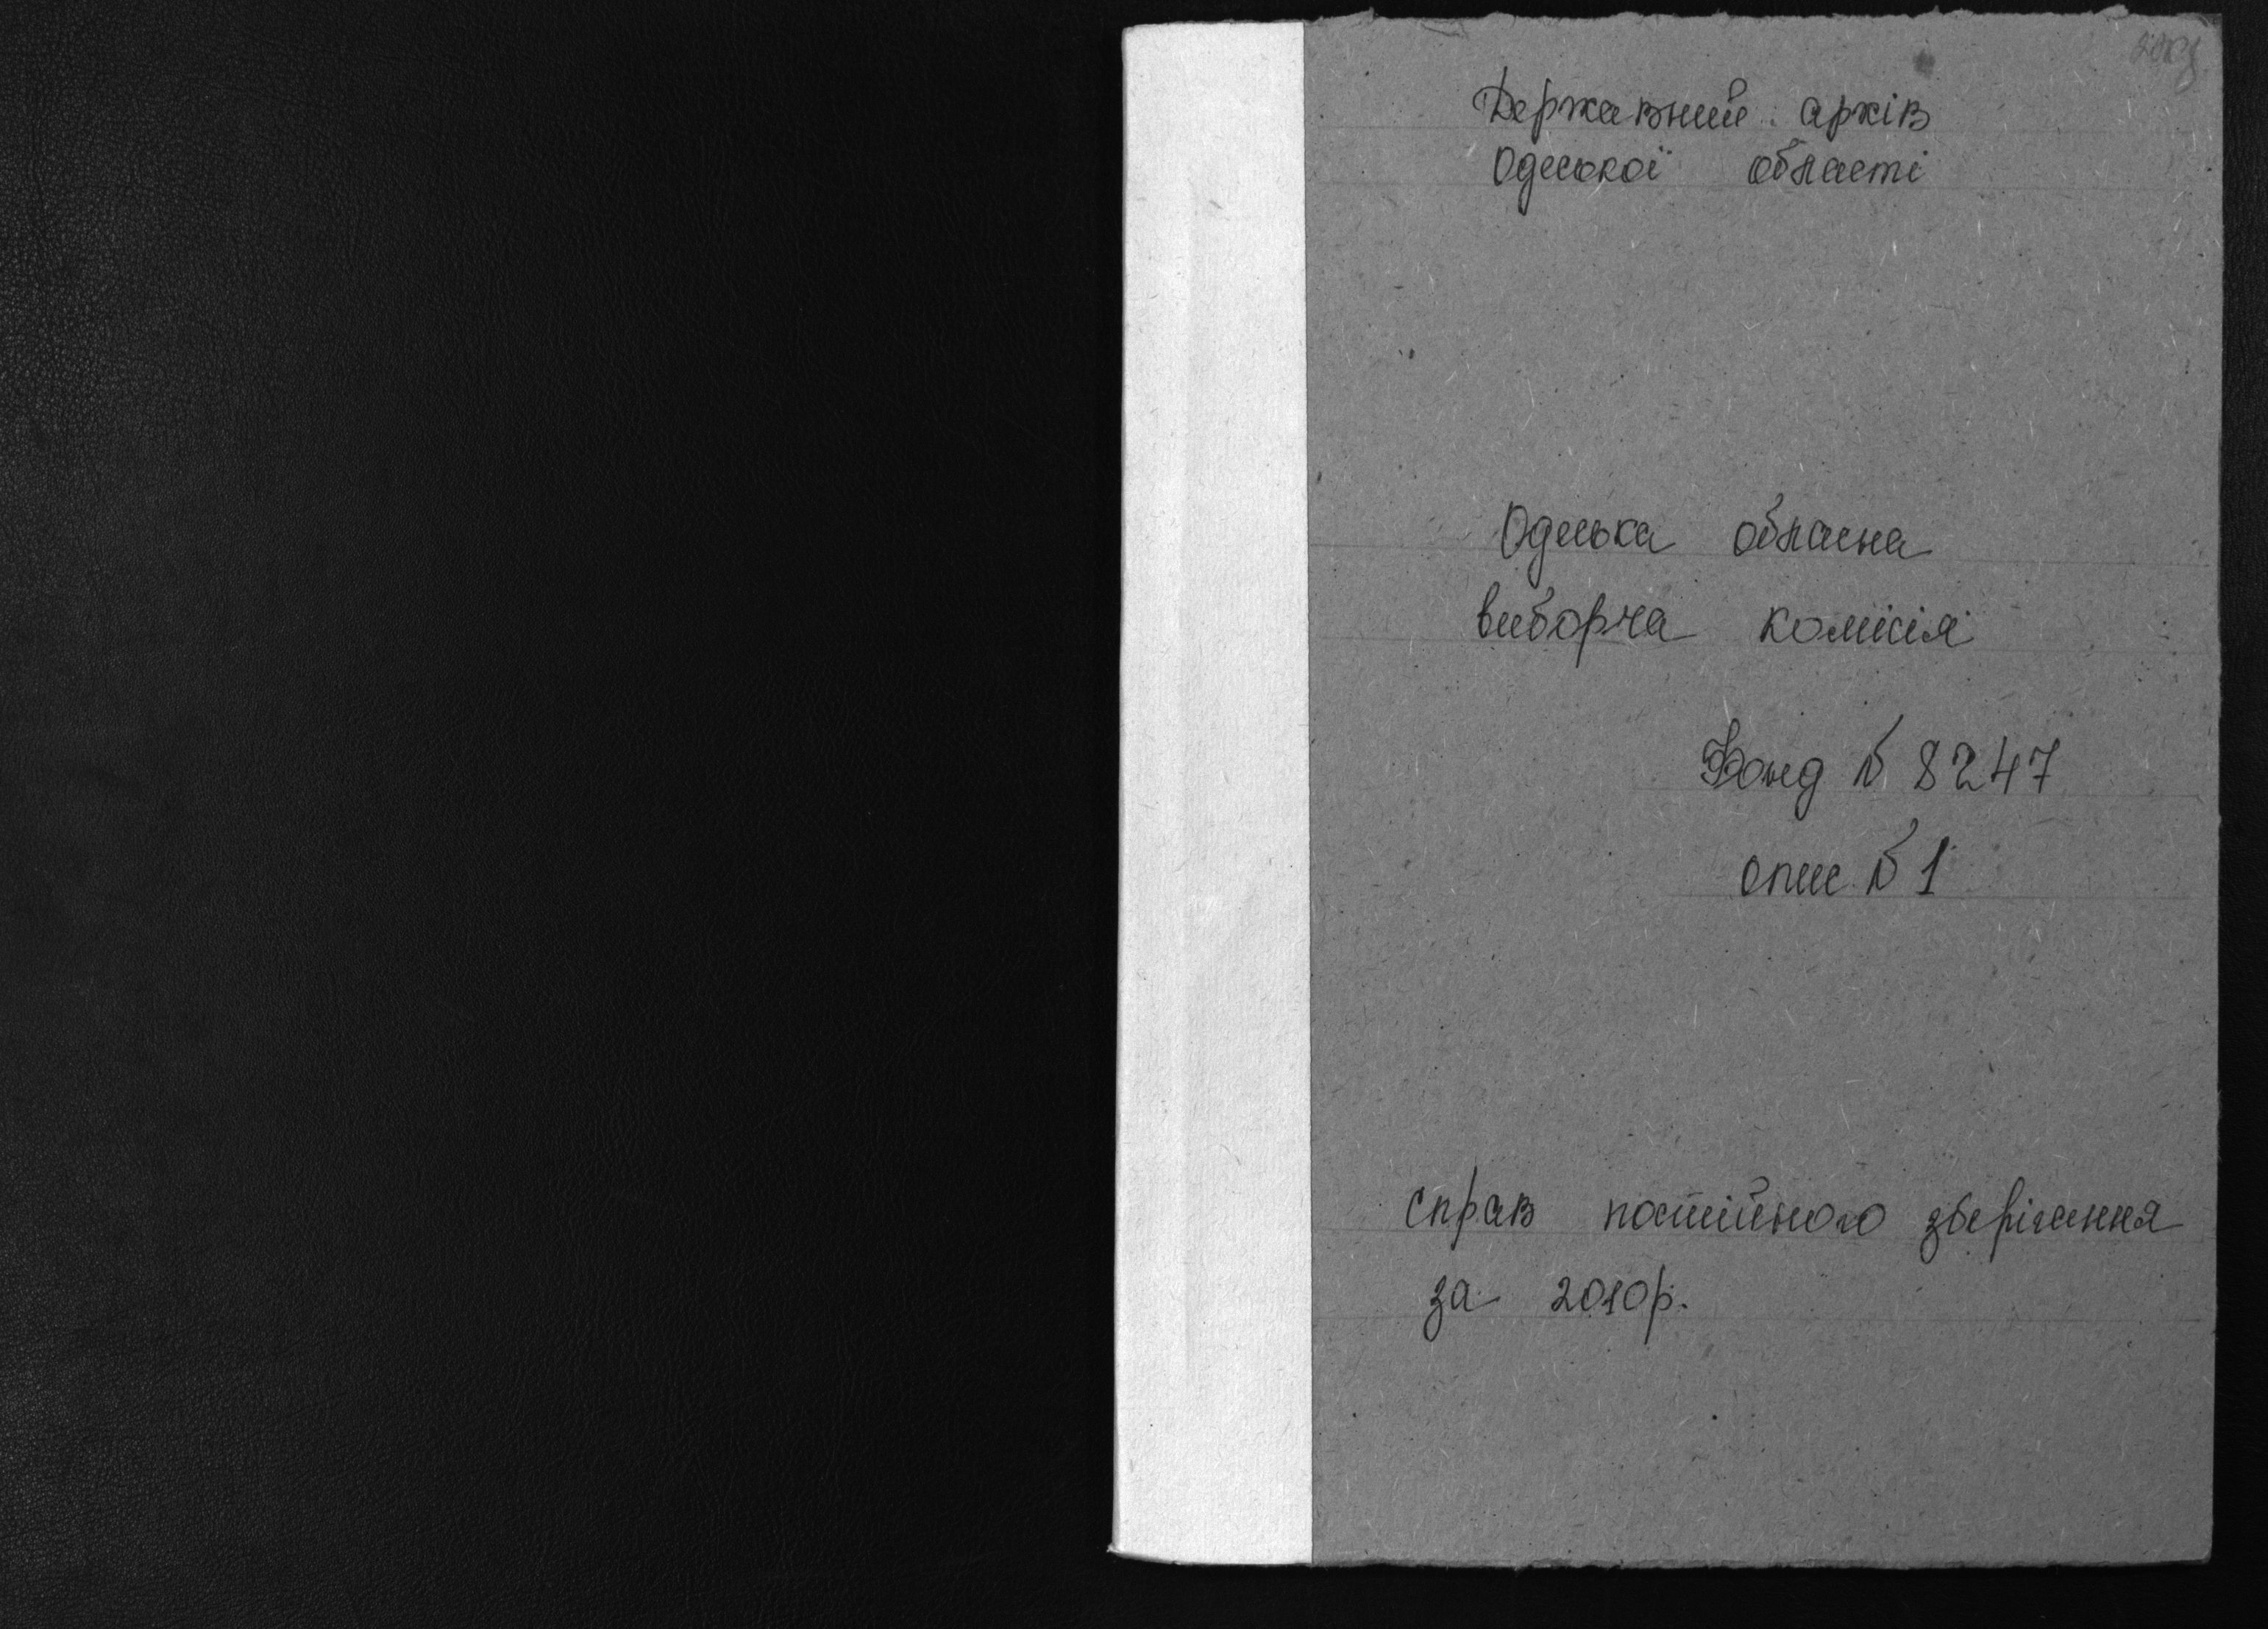 Державний архів
Одеської області
Одеська обласна
виборча комісія
Фонд № 8247
опис № 1
справ постійного зберігання
за 2010р.